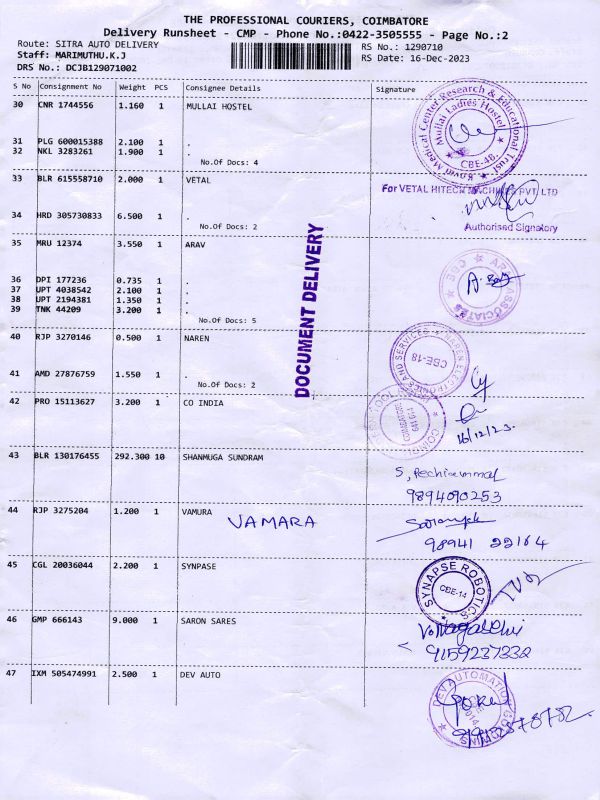 THE PROFESSIONAL COURIERS, COIMBATORE
Delivery Runsheet - CMP - Phone No.:0422-3505555 - Page No.:2
Route: SITRA AUTO DELIVERY
RS No.: 1290710
Staff: MARIMUTHU.K.J
RS Date: 16-Dec-2023
DRS No.: DCJB129071002
S No Consignment No Weight PCS Consignee Details Signature
30 CNR 1744556 1.160 1 MULLAI HOSTEL
Kovai Medical Center Research & Educational Trust
Mullai Ladies Hostel
CBE-48.
31 PLG 600015388 2.100 1 .
32 NKL 3283261 1.900 1 .
No.Of Docs: 4
33 BLR 615558710 2.000 1 VETAL
For VETAL HITECH MACHINES PVT. LTD
34 HRD 305730833 6.500 1 .
No.Of Docs: 2
Authorised Signatory
35 MRU 12374 3.550 1 ARAV
DOCUMENT DELIVERY
ASSOCIATES
CBE
36 DPI 177236 0.735 1 .
37 UPT 4038542 2.100 1 .
38 UPT 2194381 1.350 1 .
39 TNK 44209 3.200 1 .
No.Of Docs: 5
40 RJP 3270146 0.500 1 NAREN
NAREN ELECTRONICS AND SERVICES
CBE-18
41 AMD 27876759 1.550 1 .
No.Of Docs: 2
42 PRO 15113627 3.200 1 CO INDIA
16/12/23.
43 BLR 130176455 292.300 10 SHANMUGA SUNDRAM
9894090253
44 RJP 3275204 1.200 1 VAMURA
VAMARA
98941 22164
45 CGL 20036044 2.200 1 SYNPASE
SYNAPSE ROBOTICS
CBE-14
46 GMP 666143 9.000 1 SARON SARES
9159237332
47 IXM 505474991 2.500 1 DEV AUTO
DEV AUTOMATION